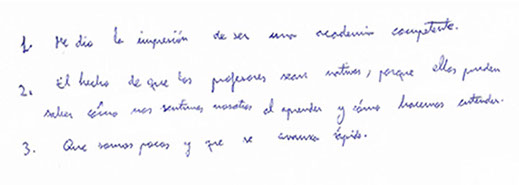 1. Me dio la impresión de ser una academia competente.
2. El hecho de que los profesores sean nativos, porque ellos pueden
saber cómo nos sentimos nosotros al aprender y cómo hacernos entender.
3. Que somos pocos y que se avanza rápido.